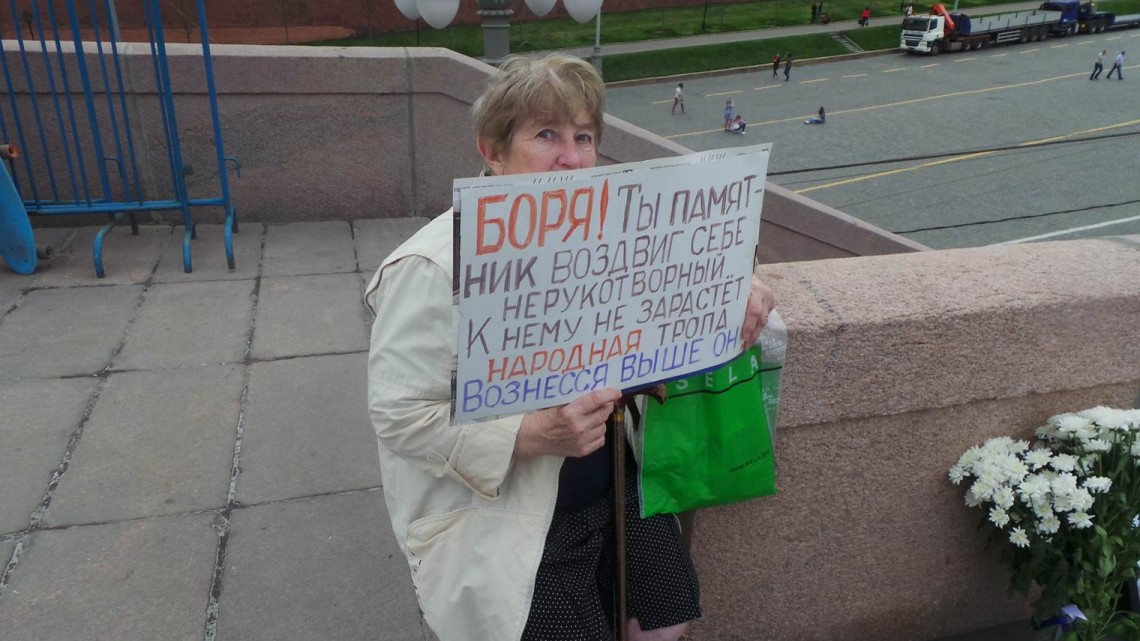 БОРЯ! ТЫ ПАМЯТ-
НИК ВОЗДВИГ СЕБЕ
НЕРУКОТВОРНЫЙ.
К НЕМУ НЕ ЗАРАСТЁТ
НАРОДНАЯ ТРОПА
ВОЗНЕССЯ ВЫШЕ ОН
SELA